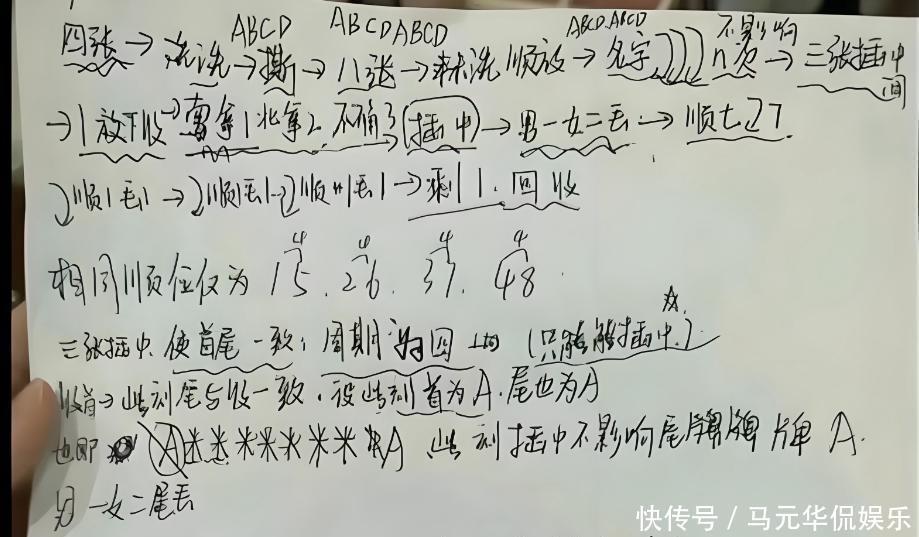 ABCD ABCDABCD ABCD.ABCD 不影响
四张→洗洗→撕→八张→未洗顺放→名字)))) n次→三张插中间
→1放下收→南拿1北拿2.不确3(插中)→男一女二丢→顺七.27
顺1丢1→顺1丢1→顺1丢1→剩1.回收
4 4 4 4
相同顺位仅为 15.26.37.48.
三张插中.使首尾一致,周期为四 (只能插中)
收首→此刻尾与收一致.设此刻首为A.尾也为A
也即 A******A 此刻插中不影响尾牌 A.
男一女二尾丢
快传号/马元华侃娱乐